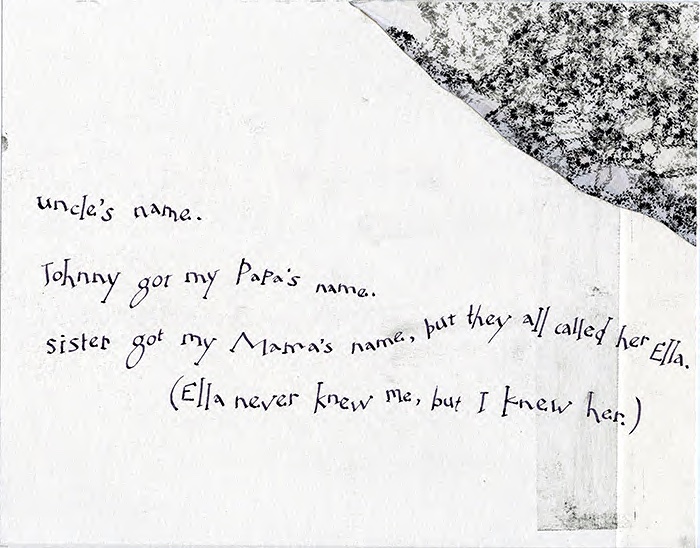 uncle's name.
Johnny got my Papa's name.
sister got my Mama's name, but they all called her Ella.
(Ella never knew me, but I knew her.)